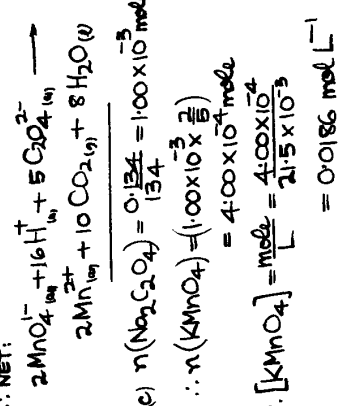 ∴ NET:
2MnO₄¹⁻(aq) + 16H⁺(aq) + 5C₂O₄²⁻(aq) ⟶
2Mn²⁺(aq) + 10CO₂(g) + 8H₂O(l)
(c) n(Na₂C₂O₄) = 0.134/134 = 1.00×10⁻³ mol
∴ n(KMnO₄) = (1.00×10⁻³ × 2/5)
= 4.00×10⁻⁴ mole
∴ [KMnO₄] = mole/L = 4.00×10⁻⁴/21.5×10⁻³
= 0.0186 mol L⁻¹